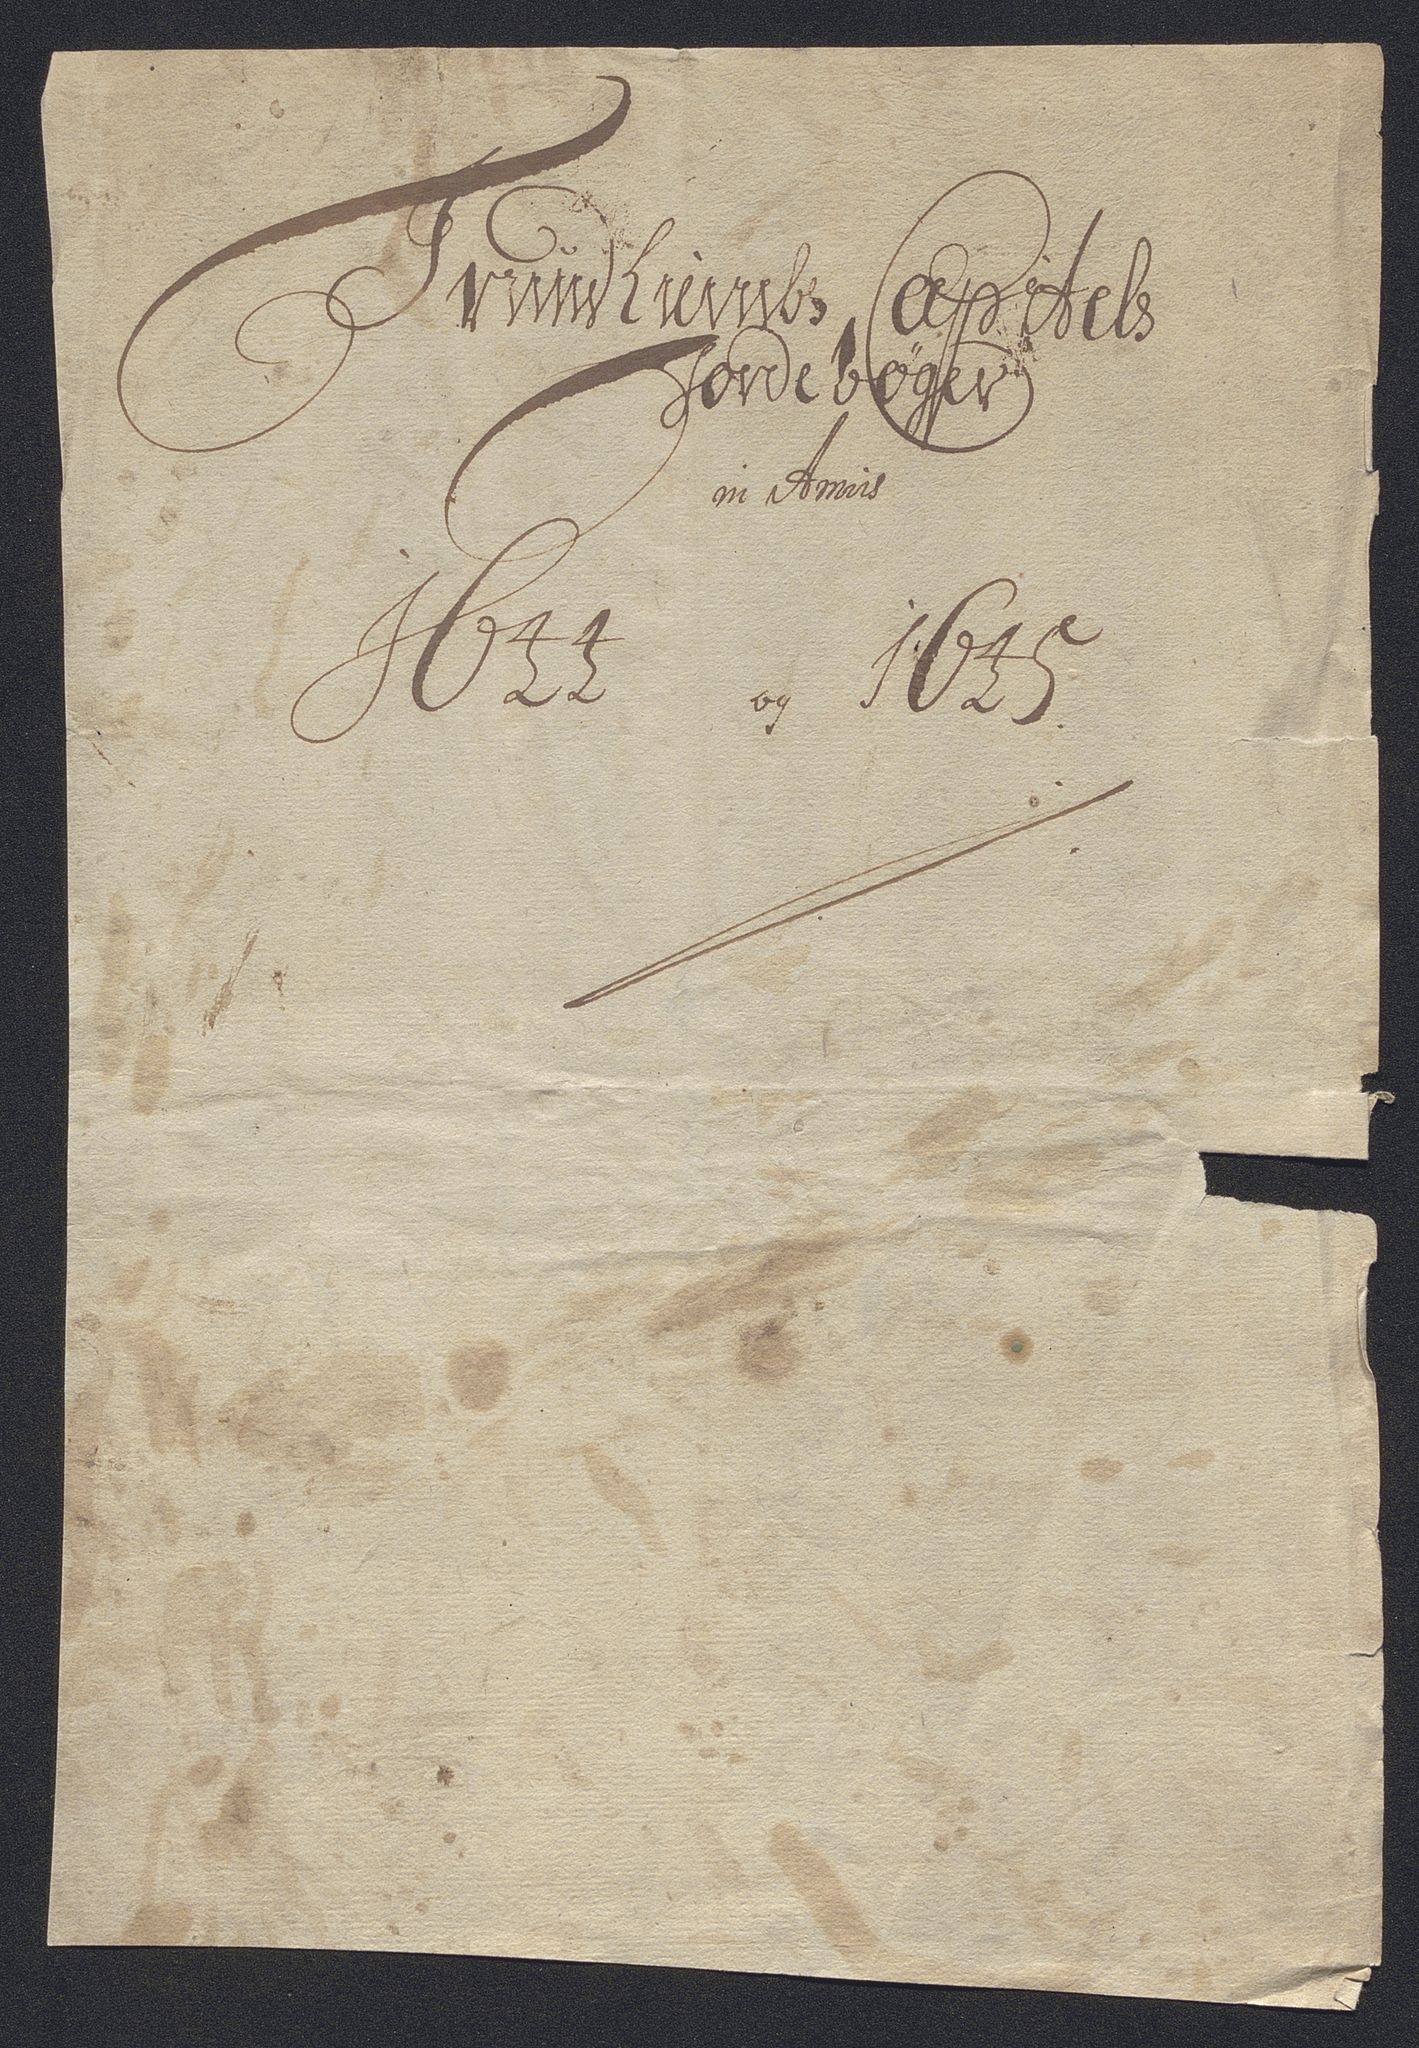 Trundhiembs Capitels
Jordebøger
in Annis
1644 og 1645